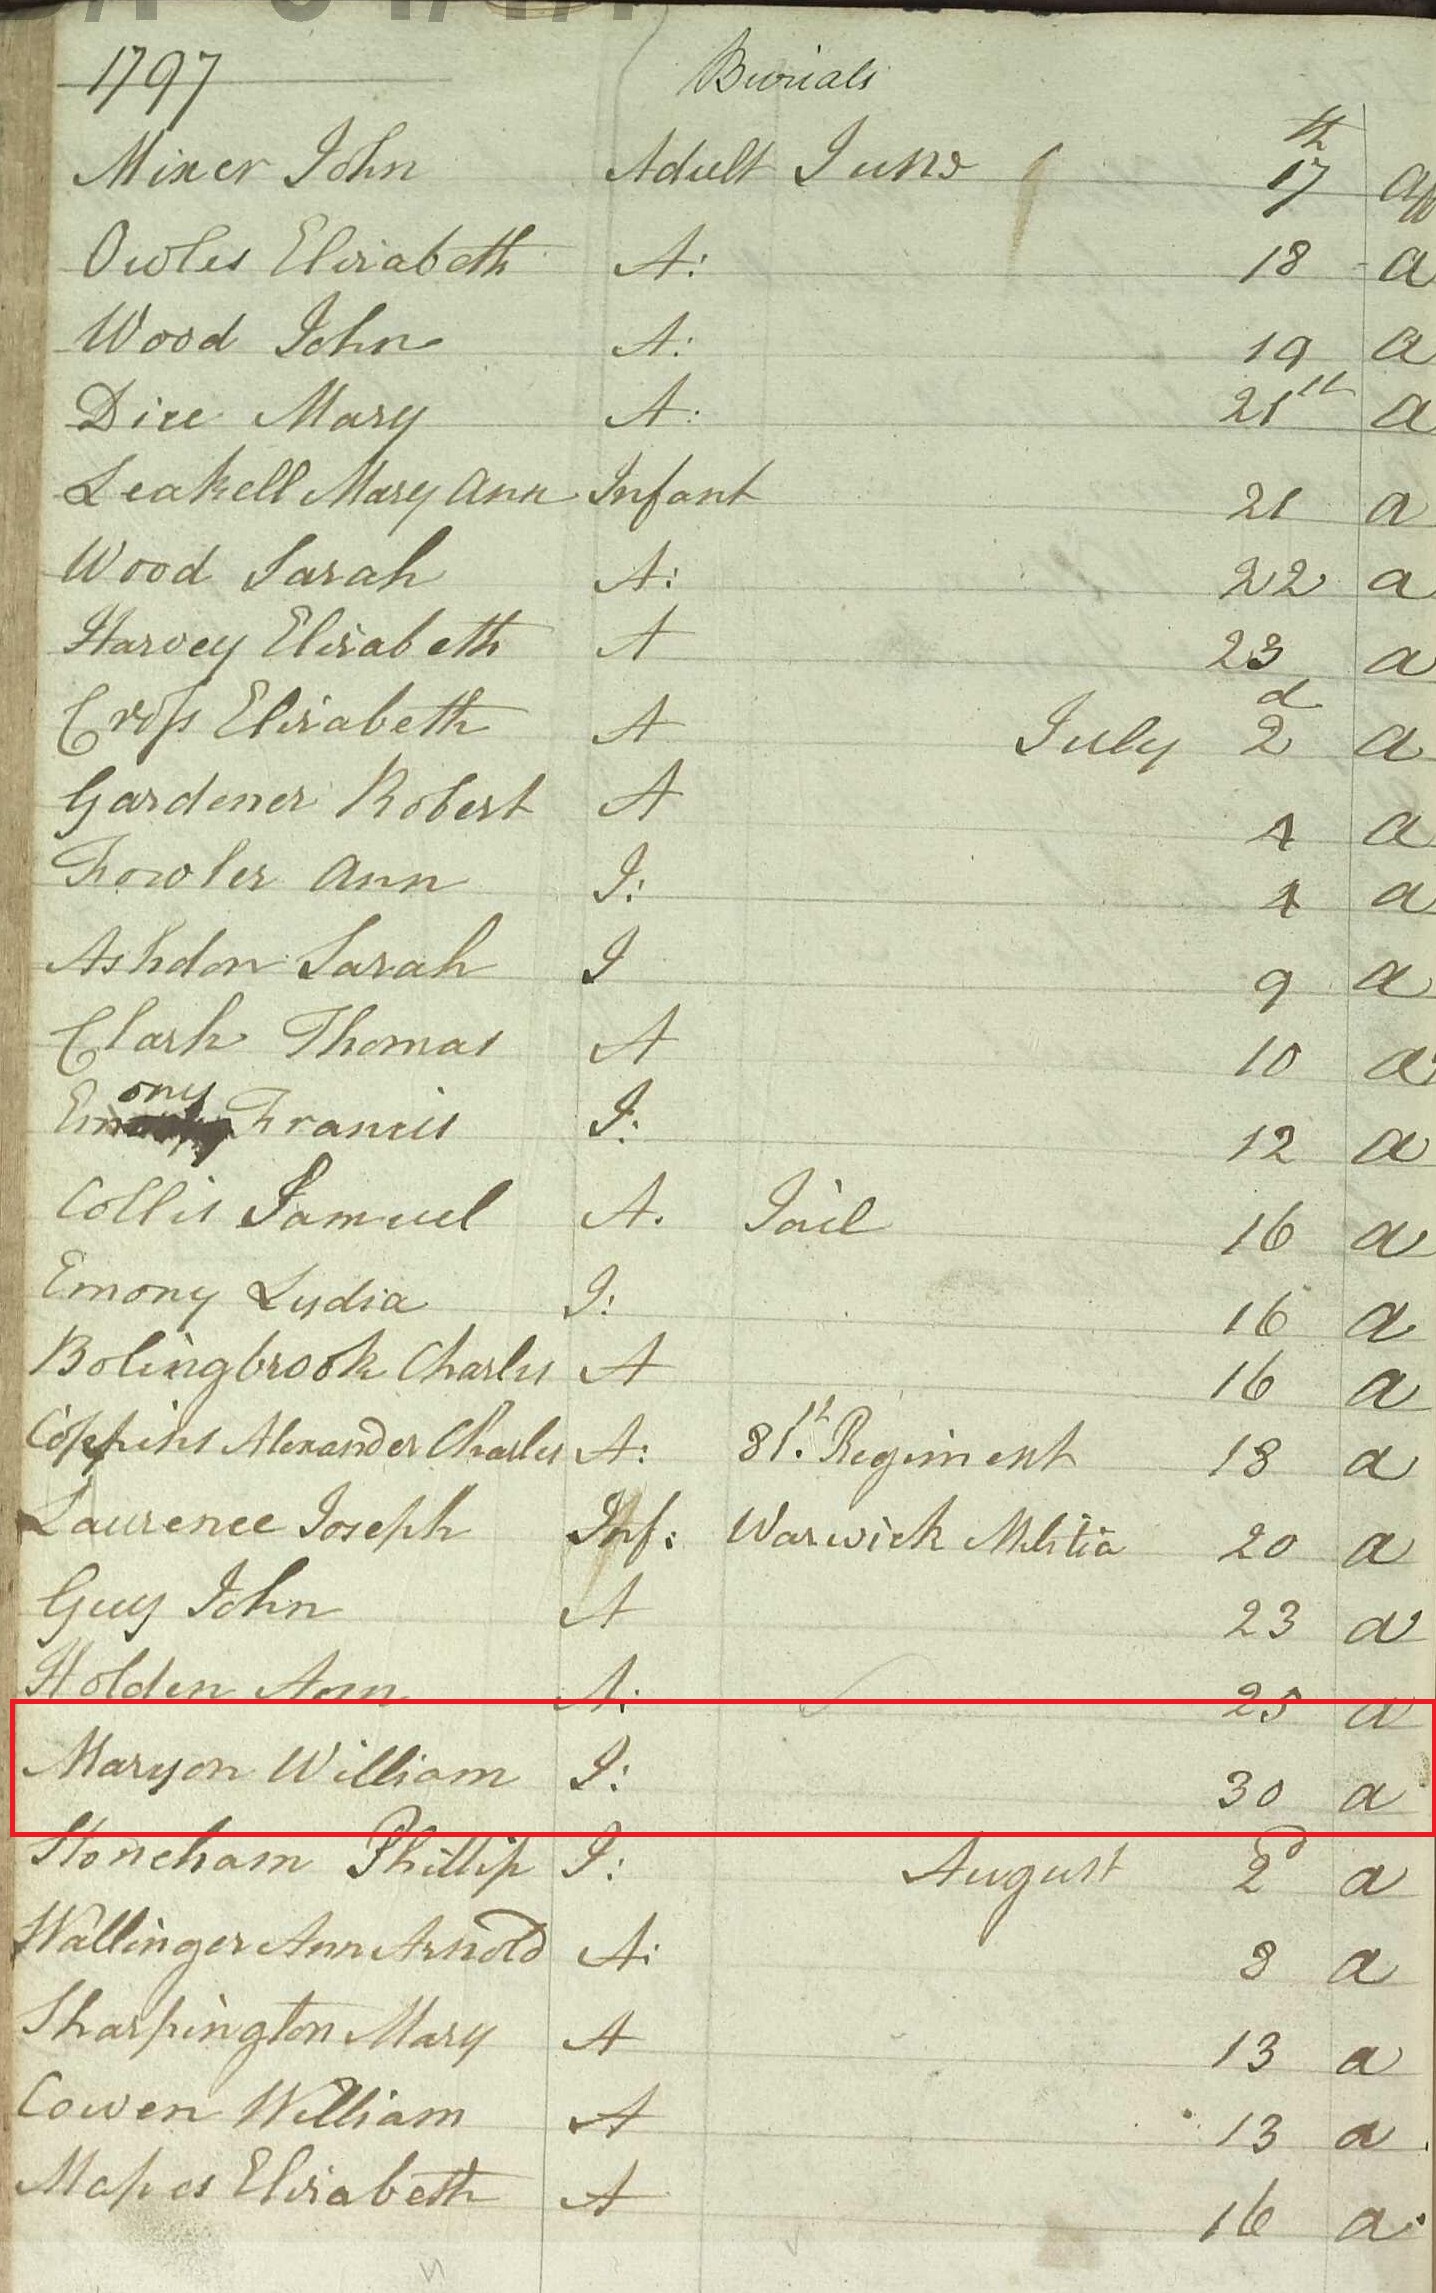 1797 Burials
Mixer John Adult June 17th
Owles Elisabeth A: 18 a
Wood John A: 19 a
Dixe Mary A: 21st a
Leakell Mary Ann Infant 21 a
Wood Sarah A: 22 a
Harvey Elisabeth A 23 a
Cross Elisabeth A July 2d a
Gardener Robert A 4 a
Fowler Ann I: 4 a
Ashdon Sarah I 9 a
Clark Thomas A 10 a
Emony Francis I: 12 a
Collis Samuel A. Jail 16 a
Emony Lydia I: 16 a
Bolingbrook Charles A 16 a
Coppins Alexander Charles A: 81st Regiment 18 a
Laurence Joseph Inf: Warwick Militia 20 a
Guy John A 23 a
Holden Ann A: 25 a
Maryon William I: 30 a
Stoneham Phillip I: August 2d a
Wallinger Ann Arnold A: 8 a
Sharpington Mary A 13 a
Cowen William A 13 a
Mapes Elisabeth A 16 a